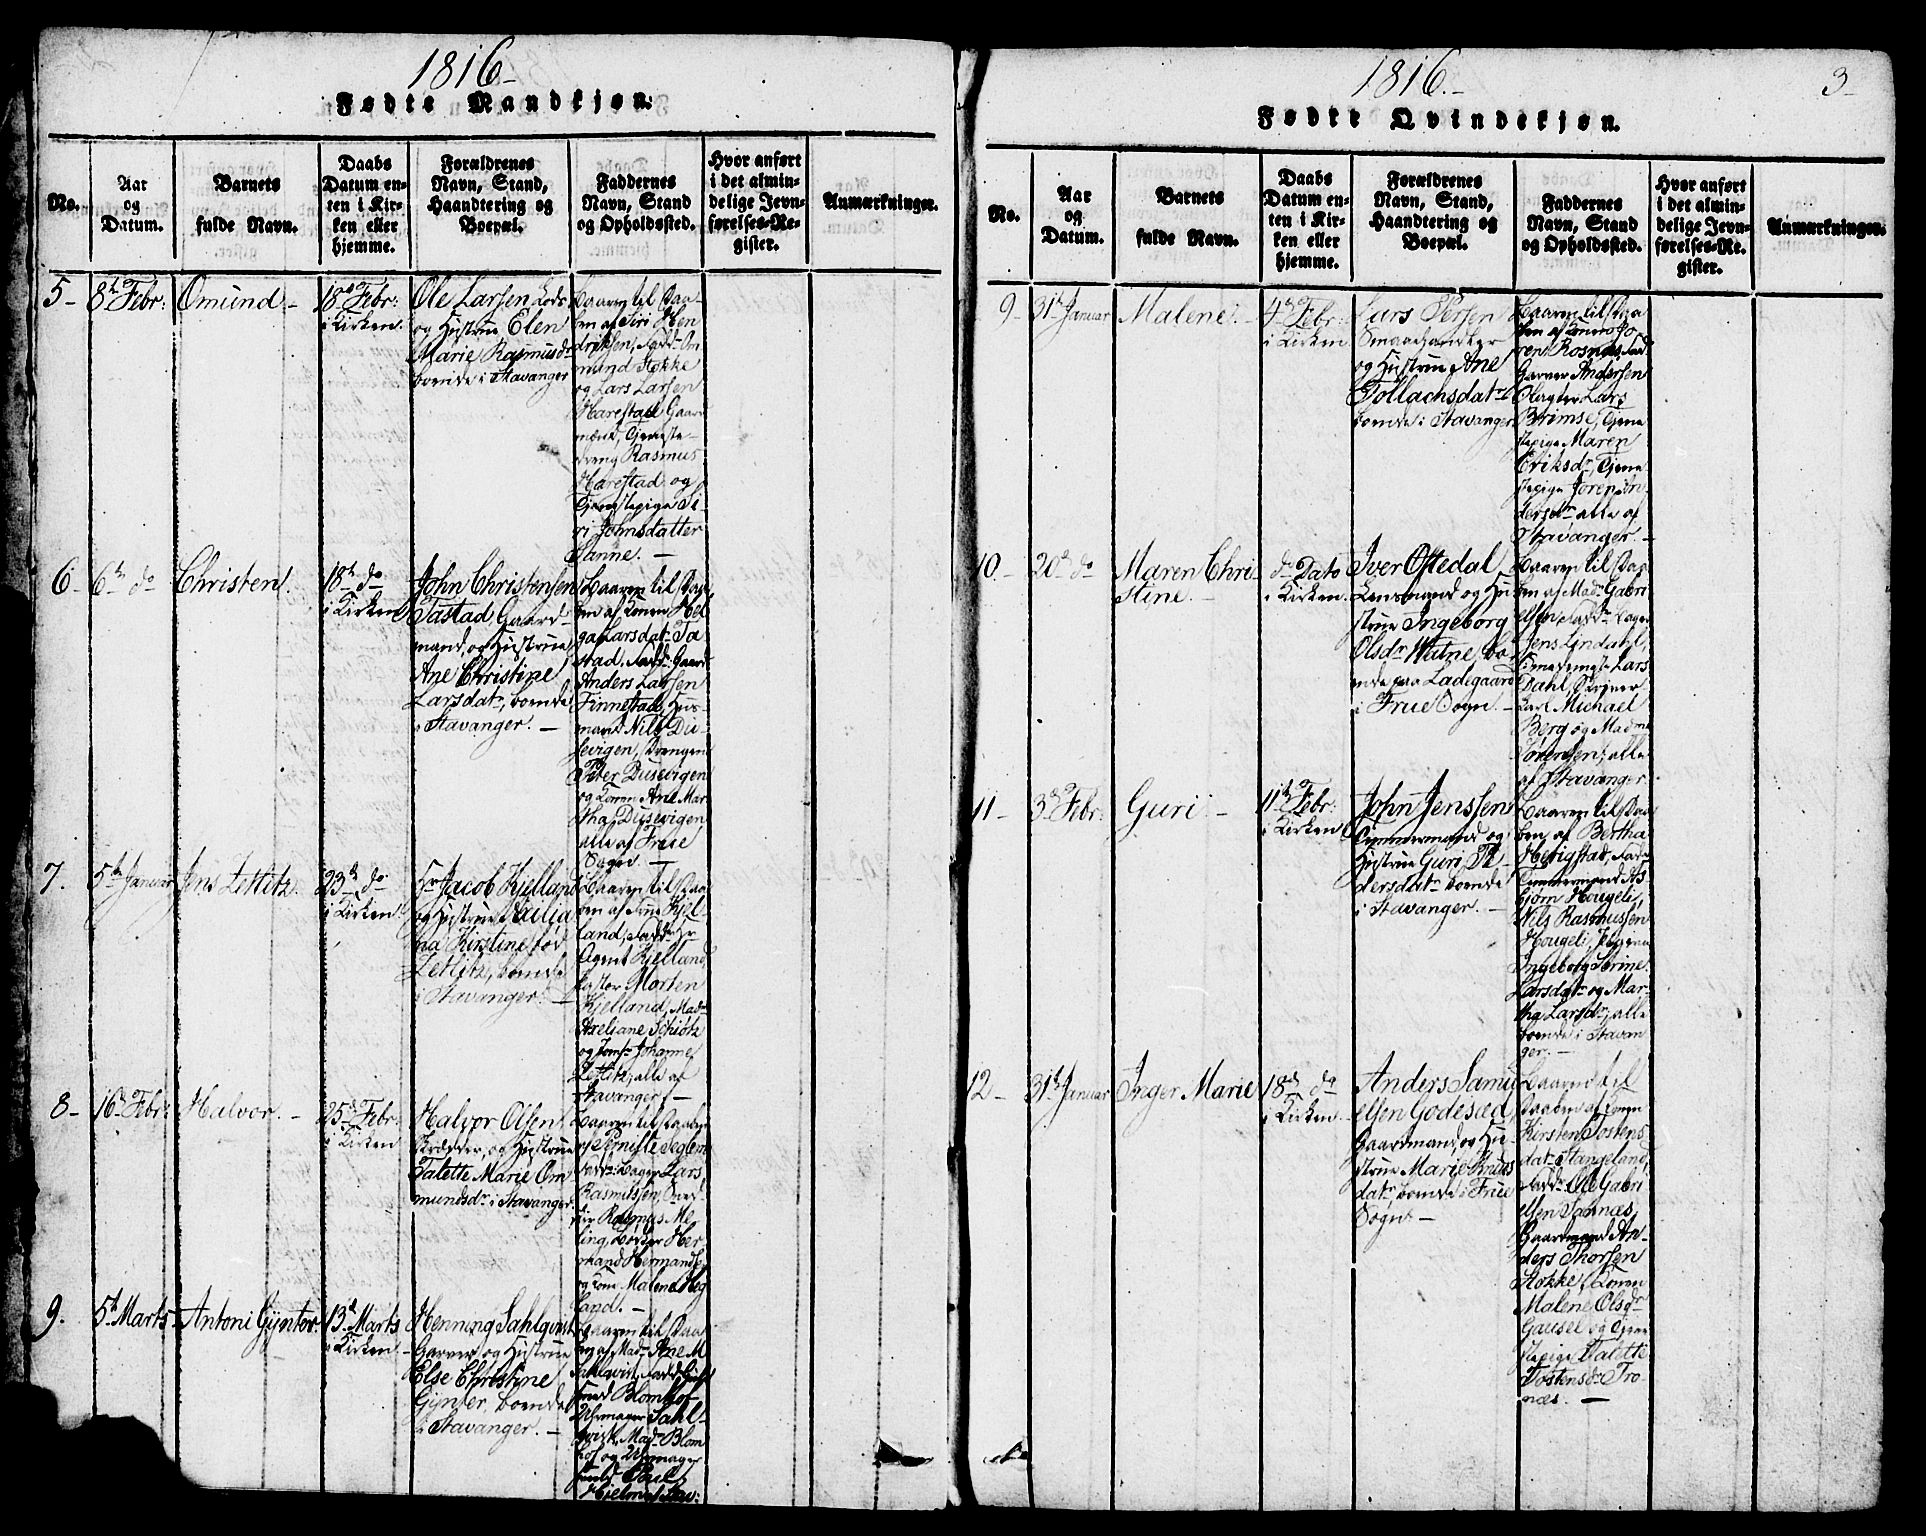 1816-
Fødte Mandkjøn.
No.
Aar
og
Datum.
Barnets
fulde Navn.
Daabs
Datum en-
ten i Kir-
ken eller
hjemme.
Forældrenes
Navn, Stand,
Haandtering og
Boepæl.
Faddernes
Navn, Stand
og Opholdssted.
Hvor anført
i det almin-
delige Jevn-
førelses-Re-
gister.
Anmærkninger.
5-
8de Febr:
Omund.-
18de Febr:
i Kirken.
Ole Larsen
og Hustrue Elen
Marie Rasmusdr
boende i Stavanger
baaren til Daa-
ben af Siri Hen
driksen, Fadd: Om
mund Stokke
og Lars Larsen
Harestad Gaard
mænd, Tjeneste-
dreng Rasmus
Harestad og
Tjenestepige Si-
ri Johnsdatter
Sanne. -
6-
6te do
Christen.
18de do
i Kirken
John Christensen
Tastad Gaard-
mand, og Hustrue
Ane Christine
Larsdatr, boende
i Stavanger. -
baaren til Daa-
ben af Konen Hel
ga Larsdatr Ta
stad, Fadd: Gaard
Anders Larsen
Finnestad, Hus-
mand Nils Du-
sevigen, Drengen
Peter Dusevigen
og Konen Ane Mar
tha Dusevigen
alle af Frue
Sogn. -
7.
5te Januar
Jens Zetlitz
23de do
i Kirken
Hr Jacob Kjelland
og Hustrue Axilia
na Kirstine fød
Zetlitz, boende
i Stavanger. -
baaren til Daa
ben af Frue Kjel-
land, Fadd: Hr
Agent Kjelland,
Pastor Morten
Kjelland, Mad:
Axeliane Schiøtz
og Jomfr Johanne
Zetlitz, alle af
Stavanger. -
8-
16de Febr:
Halvor. -
25de Febr:
i Kirken
Halvor Olsen
og Hustrue
Talette Marie Om
mundsdr i Stavanger
baaren til Daaben
af Pernille Seglem
Fadd: Lars
Rasmussen,
Rasmus Me-
ling, Her
mand Hermandsen
og Kone Malena Heg
land. -
9.
5te Marts
Antoni Gynter.
13de Marts
i Kirken
Henning Sahlqvist
Garver, og Hustrue
Else Christine
Gynter, boende
i Stavanger. -
baaren til Daa
ben af Mad: Ane M
Sahlqvist, Fadd:
Blomhof
Uhrmager Sahl-
qvist, Mad: Blom
hof og Uhrmager
Poul
Hjelm af Stav:
1816.-
3-
Fødte Qvindekjøn.
No.
Aar
og
Datum.
Barnets
fulde Navn.
Daabs
Datum en-
ten i Kir-
ken eller
hjemme.
Forældrenes
Navn, Stand,
Haandtering og
Boepæl.
Faddernes
Navn, Stand
og Opholdssted.
Hvor anført
i det almin-
delige Jevn-
førelses-Re-
gister.
Anmærkninger.
9-
31te Januar
Malene. -
4de Febr:
i Kirken
Lars Persen
Smaahandler
og Hustrue Ane
Tollachsdatr
boende i Stavanger
baaren til Daa
ben af Konen Jo-
ren Rosnæs, Fad:
Garver Andersen
Lars
Brimse, Tjene
stepige Maren
Eriksdr, Tjene
stepige Joren An
dersdr alle af
Stavanger. -
10.-
20de do
Maren Chri
stine. -
do Dato
i Kirken.
Iver Oftedal,
Lensmand og Hu
strue Ingeborg
Olsdr Watne bo-
ende paa Ladegaard
i Frue Sogn. -
baaren til Daa
ben af Mad: Gabri
elsen, Fadd: Bager
Jens Lindahl,
Lars
Dahl, Skriver
Carl Michael
Berg og Madme
Sørensen, alle
af Stavanger
11-
3de Febr:
Guri. -
11te Febr:
i Kirken
John Jenssen
Tømmermand og
Hustrue Guri Pe
dersdatr boende
i Stavanger. -
baaren til Daa
ben af Bertha
Hetigstad, Fad:
Tømmermand As
bjørn Hougeli,
Nils Rasmussen
Hougeli, Pigerne
Ingeborg Serine
Larsdatr og Mar-
tha Larsdr, alle
boende i Stavan
ger. -
12-
31te Januar
Inger Marie
18de do
i Kirken
Anders Samu
elsen Godesæd
Gaardmand, og Hu-
strue Marie Knuds
datr, boende i Frue
Sogn. -
baaren til
Daaben af Konen
Kirsten Tostens
datr Stangeland,
Fadd: Ole Gabri
elsen Sannæs,
Gaardmand An-
ders Thorsen
Stokke, Konen
Malene Olsdr
Gausel og Tjene
stepige Talette
Tostensdr Tro-
næs. -